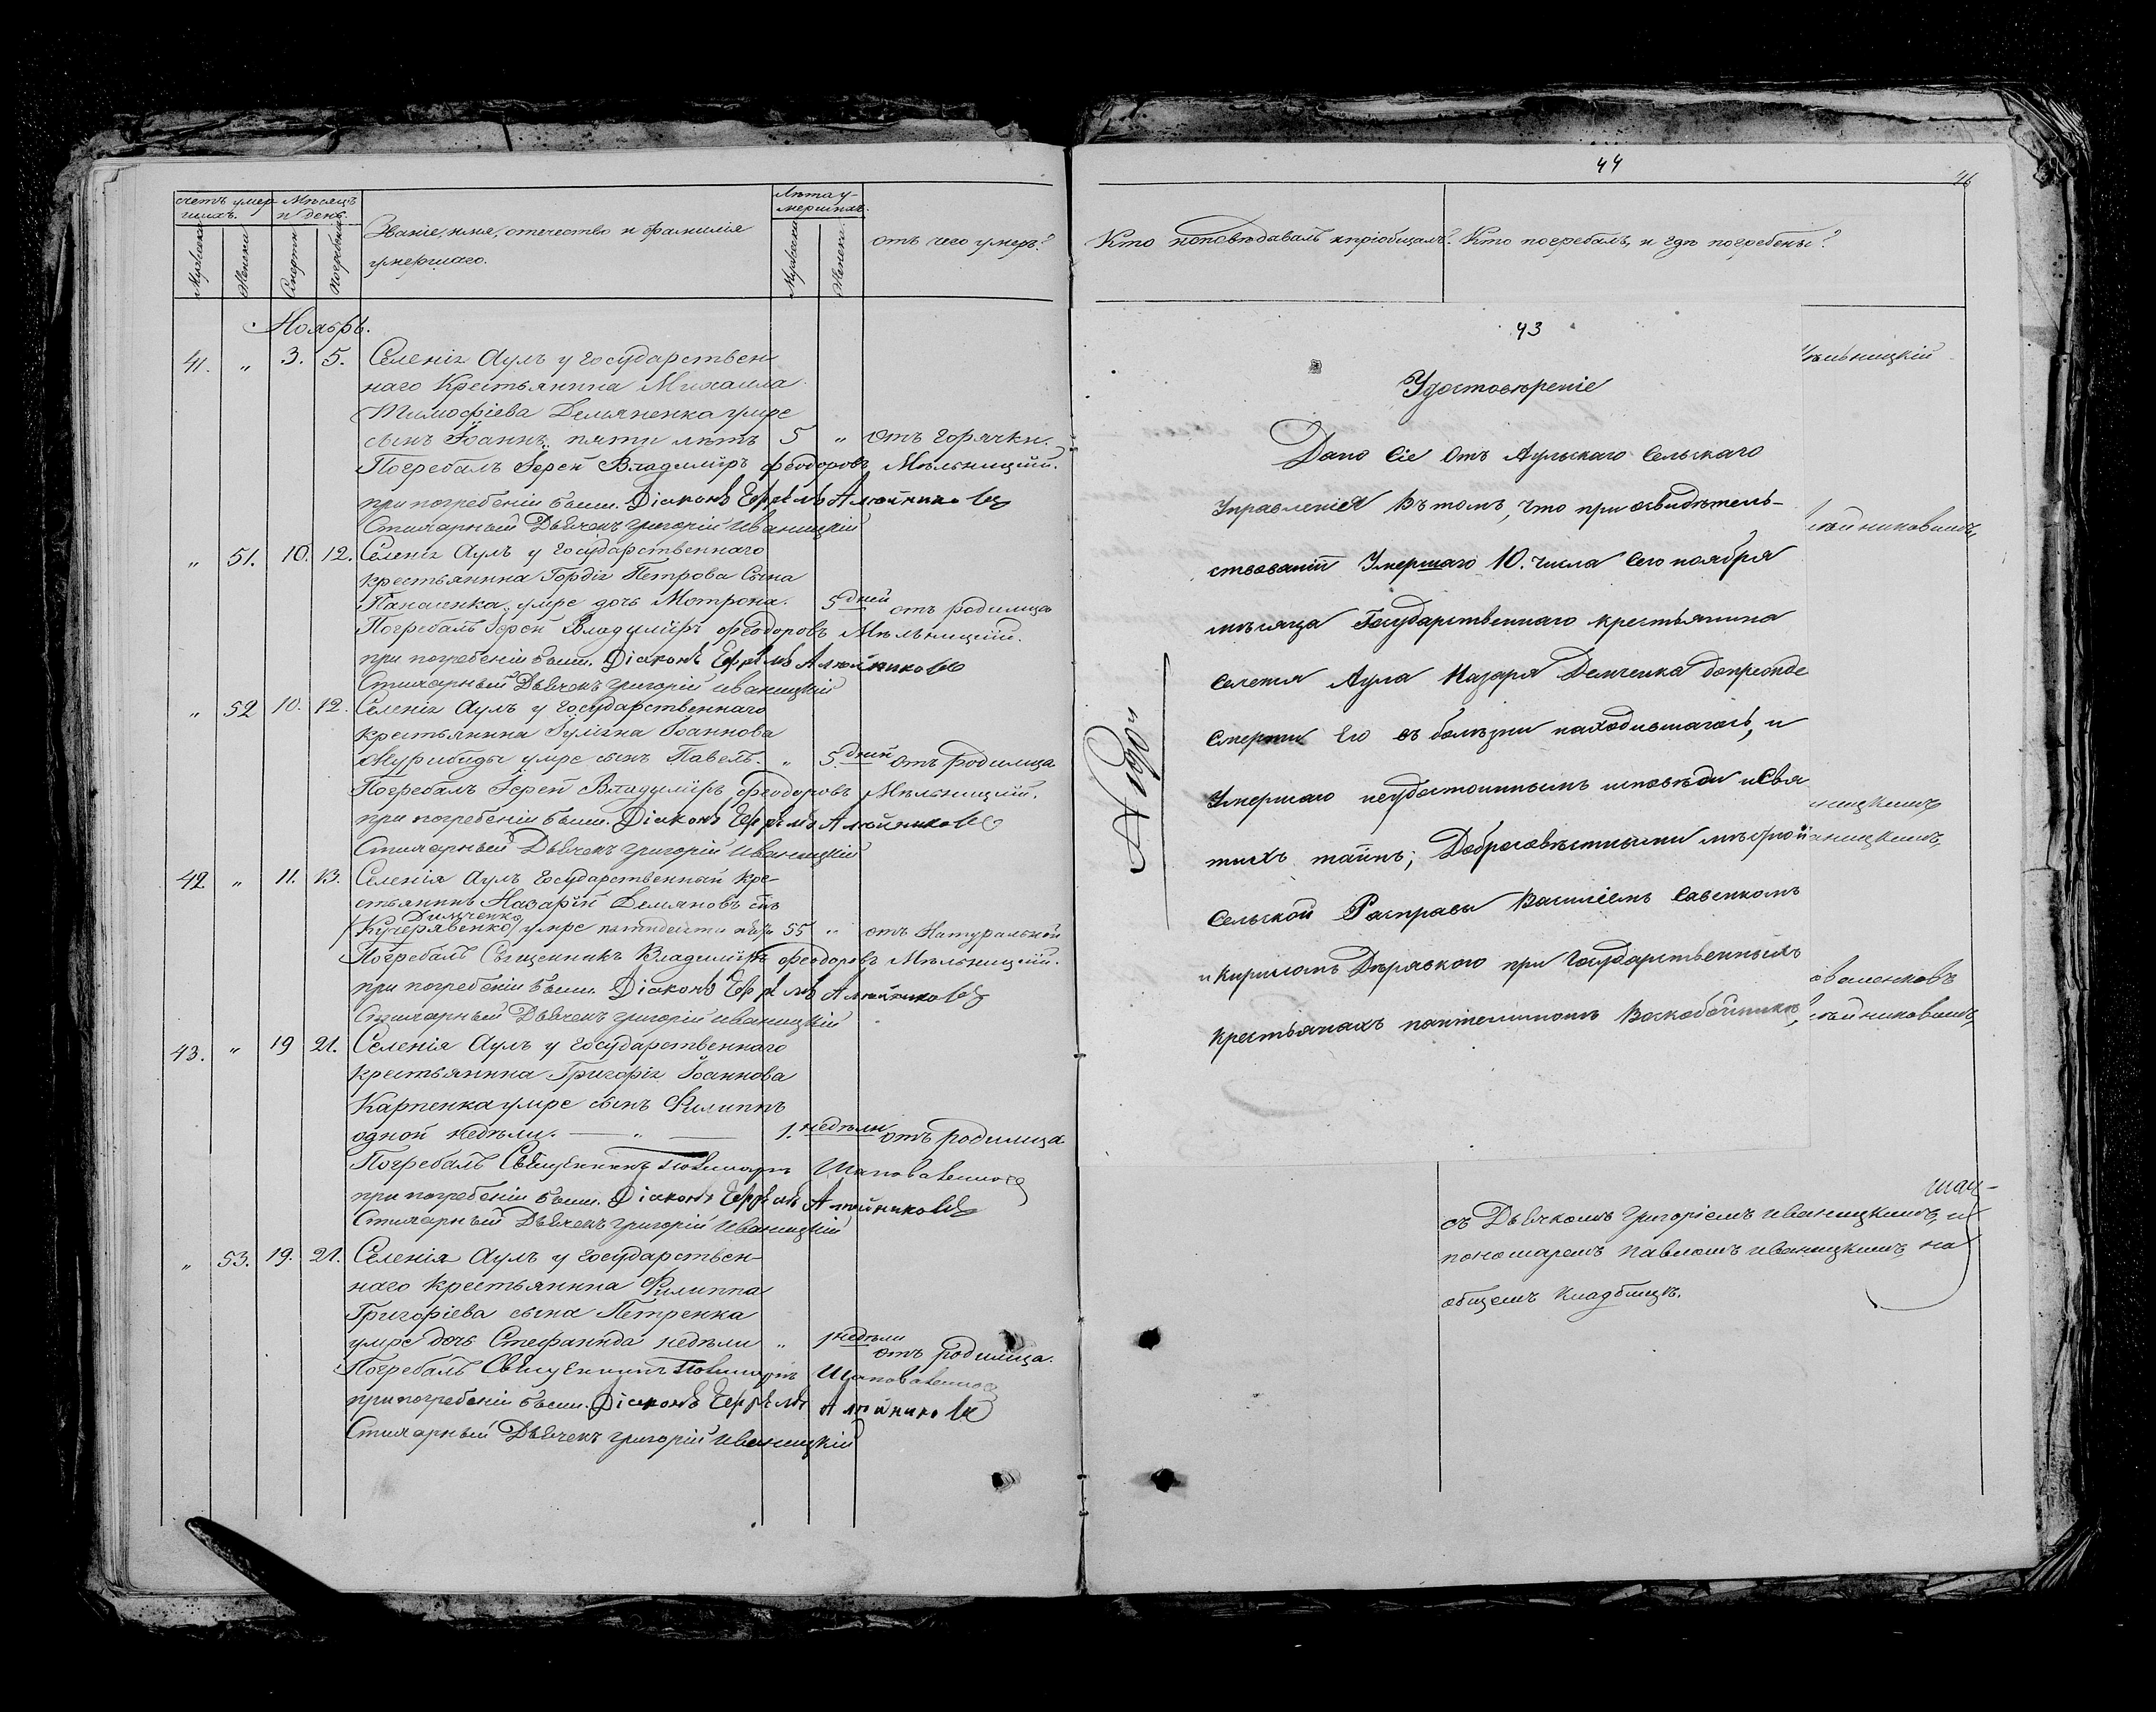 счетъ умер-
шихъ.
Мѣсяцъ
и день.
Мужеска
Женска
Смерти
Погребенія
Званіе, имя, отечество и фамилія
умершаго.
Лѣта у-
мершихъ.
Мужеска
Женска
отъ чего умеръ?
Ноябрь.
41. „ 3. 5. Селенія Аулъ у государствен-
наго крестьянина Михаила
Тимофіева Демяненка умре
сынъ Іоаннъ, пяти лѣтъ 5 „ отъ горячки.
Погребалъ Іерей Владиміръ Феодоровъ Мѣльницкій.
при погребеніи были. Діаконъ Ефремъ Алюйниковъ
Стихарный Дьячекъ Григорій Иваницкій
„ 51. 10. 12. Селенія Аулъ у государственнаго
крестьянина Гордія Петрова Сына
умре дочь Мотрона. 5 дней отъ родимца
Погребалъ Іерей Владиміръ Феодоровъ Мѣльницкій.
при погребеніи были. Діаконъ Ефремъ Алюйниковъ
Стихарный Дьячекъ Григорій Иваницкій
„ 52 10. 12. Селенія Аулъ у государственнаго
крестьянина Іуліана Іоаннова
умре сынъ Павелъ. „ 5. дній отъ родимца
Погребалъ Іерей Владиміръ Феодоровъ Мѣльницкій.
при погребеніи были. Діаконъ Ефремъ Алюйниковъ
Стихарный Дьячекъ Григорій Иваницкій
42. „ 11. 13. Селенія Аулъ государственный кре-
стьянинъ Назарій Демяновъ снъ
Димченко
Кучерявенко умре пятидесяти пяти 55 „ отъ Натуральной
Погребалъ Священникъ Владиміръ Феодоровъ Мѣльницкій.
при погребеніи были. Діаконъ Ефремъ Алюйниковъ
Стихарный Дьячекъ Григорій Иваницкій
43. „ 19 21. Селенія Аулъ у государственнаго
крестьянина Григорія Іоаннова
Карпенка умре сынъ Филиппъ
одной недѣли. — „ — 1. недѣли отъ родимца
Погребалъ Священникъ Шаповаленко
при погребеніи были. Діаконъ Ефремъ Алюйниковъ
Стихарный Дьячекъ Григорій Иваницкій
„ 53. 19. 21. Селенія Аулъ у государствен-
наго крестьянина Филиппа
Григоріева сына Петренка
умре дочь Стефанида недѣли „ 1 недѣли
отъ родимца.
Погребалъ Священникъ Шаповаленко
при погребеніи были. Діаконъ Ефремъ Алюйниковъ
Стихарный Дьячекъ Григорій Иваницкій
44
46
Кто исповѣдавалъ и пріобщалъ?
Кто погребалъ, и гдѣ погребены?
43
Удостовѣреніе
Дано Сіе Отъ Аульскаго Сельскаго
Управленія Въ томъ, что при освидѣтель-
ствованій Умершаго 10. числа Сего ноября
мѣсяца Государственнаго крестьянина
Селенія Аула Назаря Демченка допрежде
Смерти Его въ болѣзни находившагось, и
Умершаго неудостоиннымъ исповѣди и Свя
тыхъ таинъ; Добросовѣстными мѣстной
Сельской Расправы Василіемъ Савенкомъ
и Кириломъ при Государственныхъ
крестьянахъ
ѣльницкій
люйниковымъ,
ницкимъ
аницкимъ,
оваленковъ
люйниковымъ,
съ Дьячкомъ Григоріемъ Иваницкимъ, и
пономаремъ Павломъ Иваницкимъ, на
общемъ кладбищѣ.